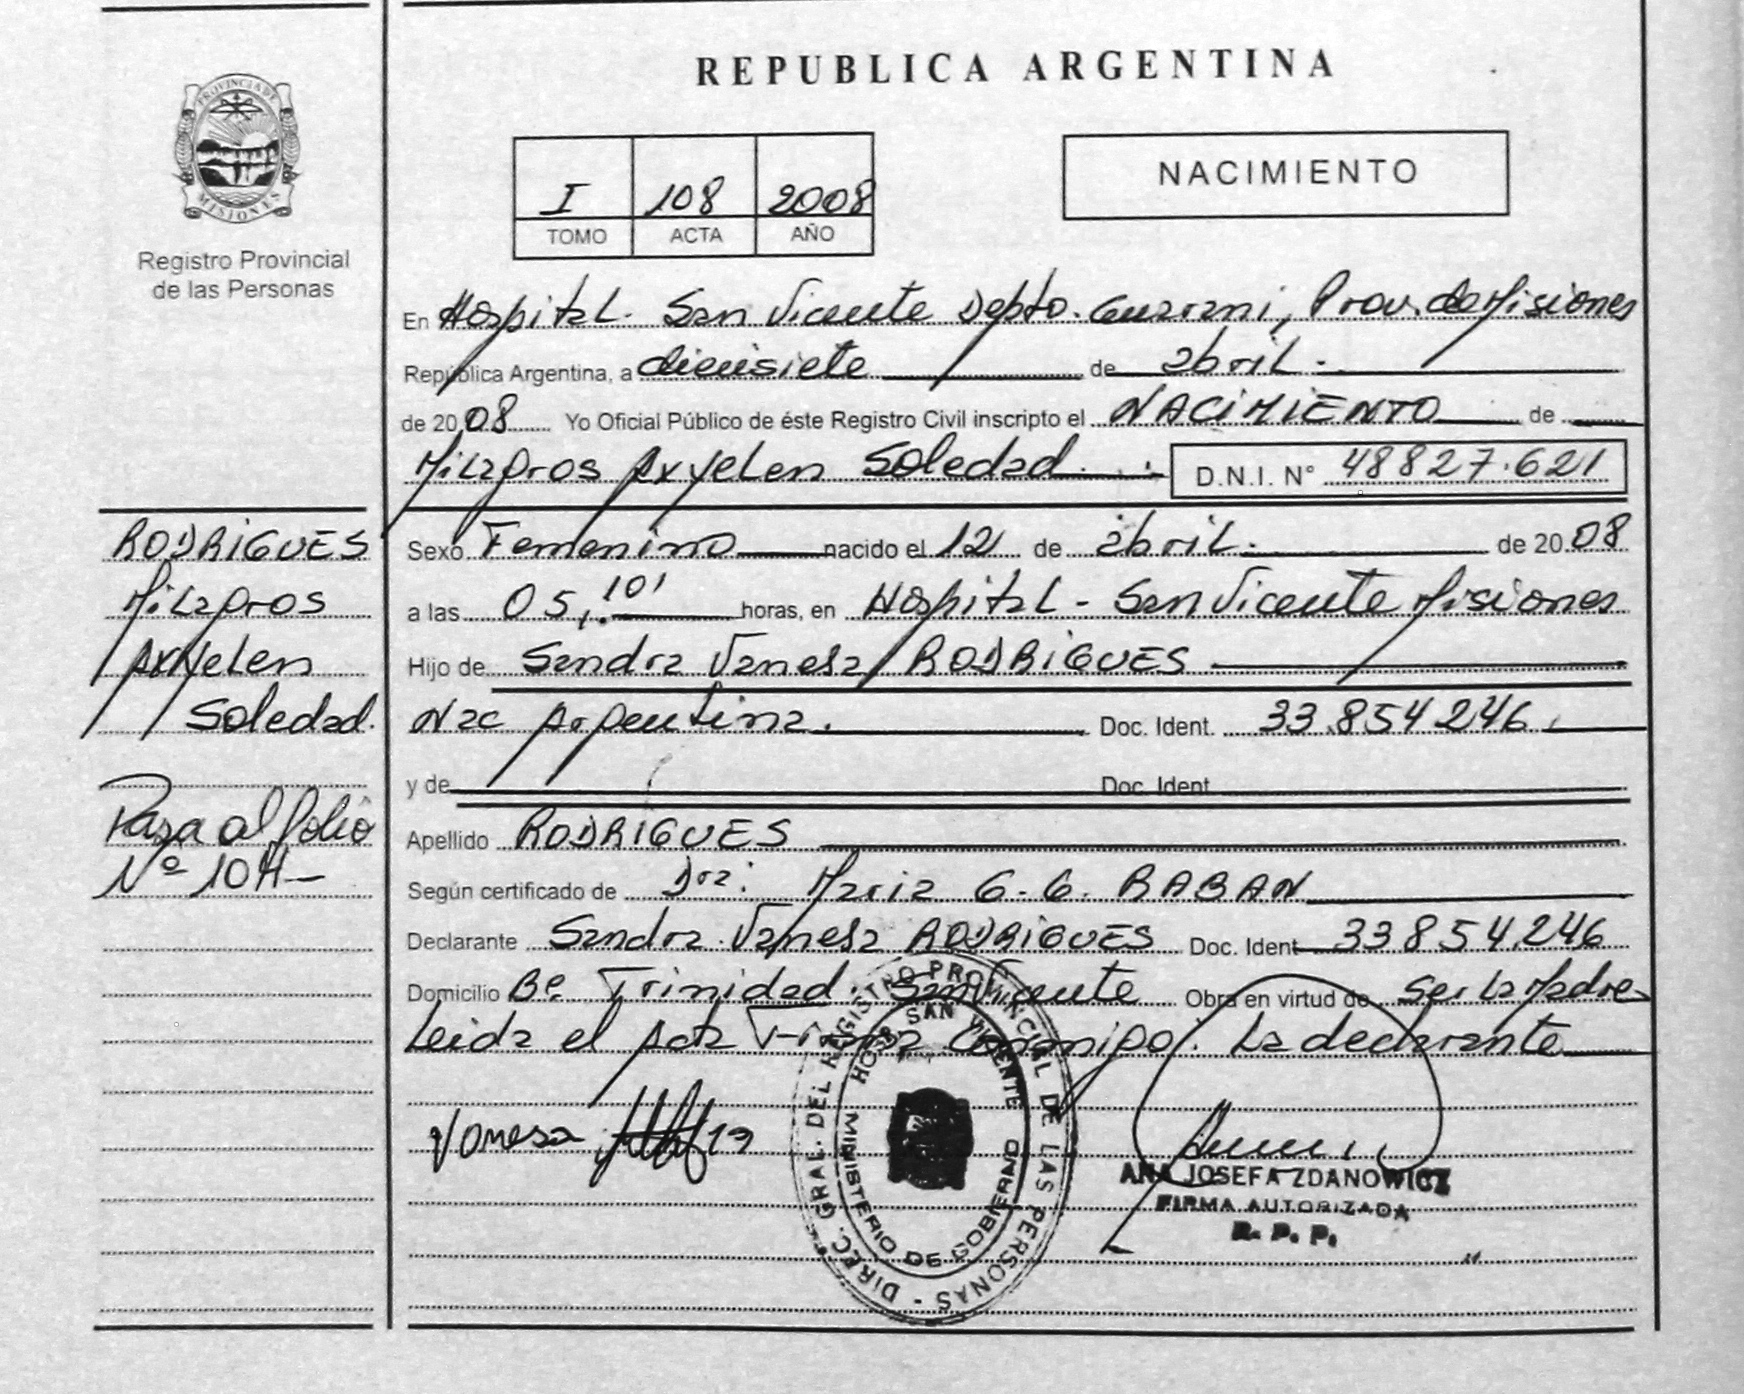 REPUBLICA ARGENTINA
PROVINCIA DE
MISIONES
Registro Provincial
de las Personas
I 108 2008
TOMO ACTA AÑO
NACIMIENTO
En Hospital. San Vicente Depto. Guarani, Prov. de Misiones
República Argentina, a diecisiete de abril.
de 2008 Yo Oficial Público de éste Registro Civil inscripto el NACIMIENTO de
Milagros Axyelen Soledad. D.N.I. N° 48827.621
Sexo Femenino nacido el 12 de abril. de 2008
a las 05,10' horas, en Hospital - San Vicente Misiones
Hijo de Sandra Vanesa RODRIGUES
Nac Argentina. Doc. Ident. 33.854246.
y de Doc. Ident
Apellido RODRIGUES
Según certificado de Dra: Maria G. G. RABAN
Declarante Sandra Vanesa RODRIGUES Doc. Ident 33854.246
Domicilio Bº Trinidad. San Vicente Obra en virtud de Ser la Madre
Leida el Acta la declarante
RODRIGUES
Milagros
Axyelen
Soledad.
Pasa al folio
Nº 104-
Vanesa
DIREC. GRAL. DEL REGISTRO PROVINCIAL DE LAS PERSONAS -
HOSP. SAN VICENTE
MINISTERIO DE GOBIERNO
ANA JOSEFA ZDANOWICZ
FIRMA AUTORIZADA
R. P. P.